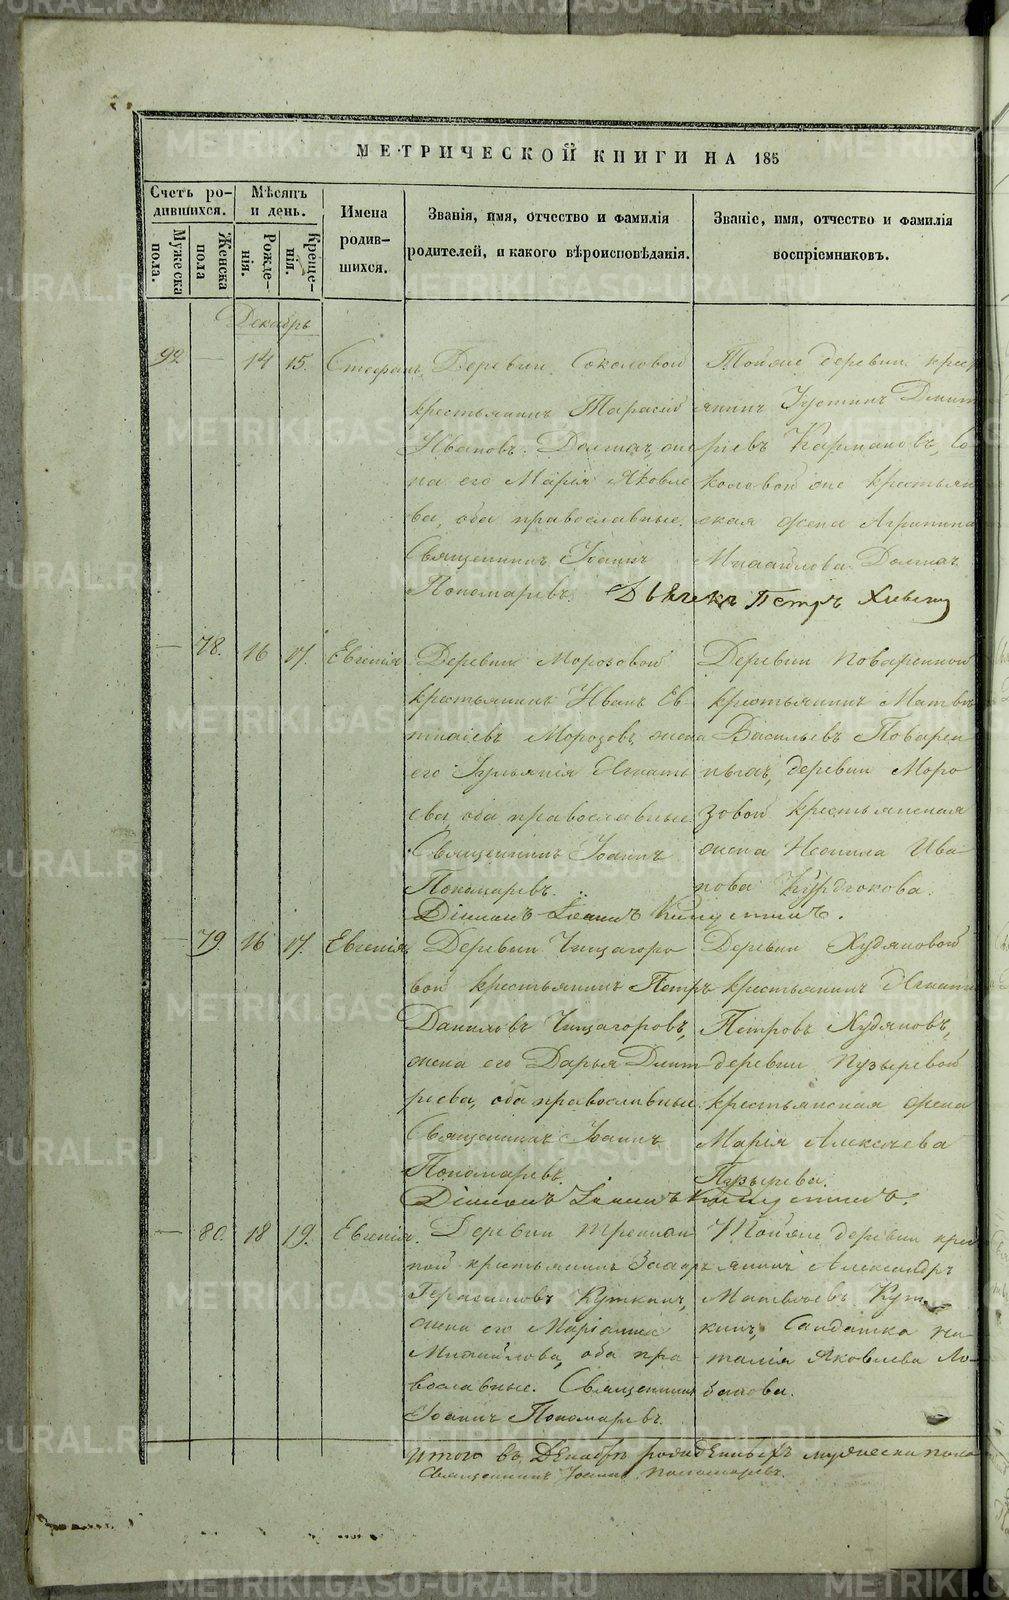 МЕТРИЧЕСКОЙ КНИГИ НА 185
Счетъ ро-
дившихся.
Мужеска
пола.
Женска
пола
Мѣсяцъ
и день.
Рожде-
нія.
Креще-
нія.
Имена
родив-
шихся.
Званія, имя, отчество и фамилія
родителей, и какого вѣроисповѣданія.
Званіе, имя, отчество и фамилія
воспріемниковъ.
Декабрь
92 — 14 15. Стефанъ
Деревни Соколовой
крестьянинъ Тарасій
Ивановъ Долматъ, же
на его Марія Яковле
ва, оба православные.
Священникъ Іоаннъ
Пономаревъ.
Тойже деревни крес
янинъ Іустинъ Димит
ріевъ Кармановъ, Со
коловой же крестьян
ская жена Агрипина
Михайлова Долмат
Дьячекъ Петръ
— 78. 16 17. Евгенія
Деревни Морозовой
крестьянинъ Иванъ Ев
Морозовъ, жена
его Іуліанія Игнать
ева, оба православные
Священникъ Іоаннъ
Пономаревъ.
Деревни Поваренной
крестьянинъ Матвѣ
Васильевъ Поварен
ныхъ, деревни Моро
зовой крестьянская
жена Неонила Ива
нова Курдюкова.
Діаконъ Іоаннъ
— 79 16 17. Евгенія
Деревни Чищагоро
вой крестьянинъ Петръ
Даниловъ Чищагоровъ,
жена его Дарья Димит
ріева, оба православные
Священникъ Іоаннъ
Пономаревъ.
Деревни Худяковой
крестьянинъ Игнат
Петровъ Худяковъ,
деревни Пузыревой
крестьянская жена
Марія Алексѣева
Пузырева.
Діаконъ Іоаннъ
— 80. 18 19. Евгенія.
Деревни
ной крестьянинъ Захаръ
Герасимовъ Куткинъ,
жена его Маріамна
Михайлова, оба пра
вославные. Священникъ
Іоаннъ Пономаревъ.
Тойже деревни крес
янинъ Александръ
Матвѣевъ Кут
кинъ, Салдатка На
талія Яковлева Ло-
банова.
Итого въ Декабрѣ рожденныхъ мужеска пола
Священникъ Іоаннъ Пономаревъ.
METRIKI.GASO-URAL.RU